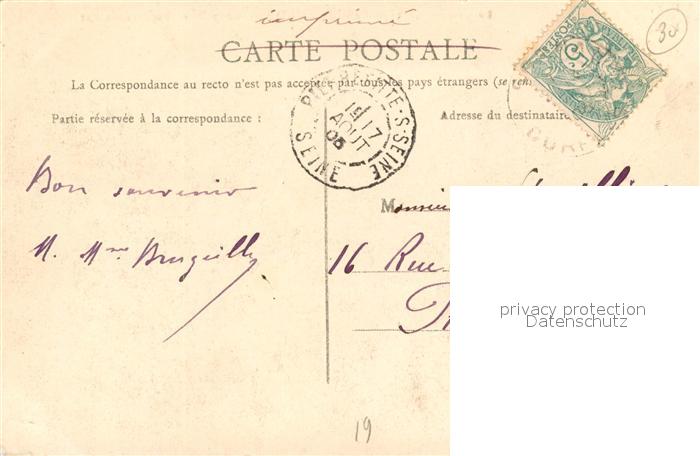 imprimé
CARTE POSTALE
30
La Correspondance au recto n'est pas acceptée par tous les pays étrangers (se
Partie réservée à la correspondance :
Adresse du destinataire
5c
POSTE
PIERREFITTE-S-SEINE
SEINE
17
AOUT
05
Bon souvenir
Monsieur
M. Mme
16 Rue
privacy protection
Datenschutz
19